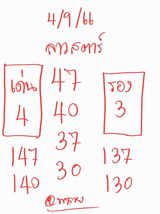 4/9/66
ลาวสตาร์
เด่น 47 รอง
4 40 3
37
147 30 137
140 130